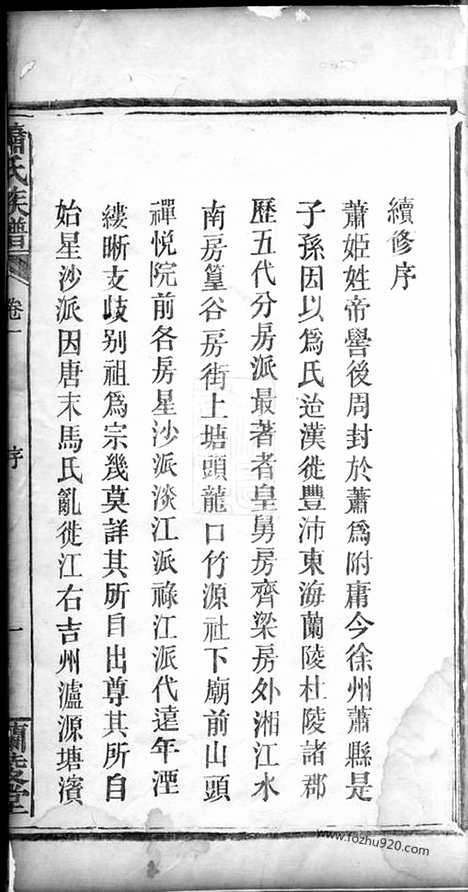 續修序
蕭姬姓帝嚳後周封於蕭爲附庸今徐州蕭縣是
子孫因以爲氏迨漢徙豐沛東海蘭陵杜陵諸郡
歷五代分房派最著者皇舅房齊梁房外湘江水
南房篁谷房街上塘頭龍口竹源社下廟前山頭
禪悅院前各房星沙派淡江派祿江派代遠年湮
縷晰支歧别祖爲宗幾莫詳其所自出尊其所自
始星沙派因唐末馬氏亂徙江右吉州瀘源塘濱
蕭氏族譜
卷一
序
一
蘭陵堂
www.fozhu920.com